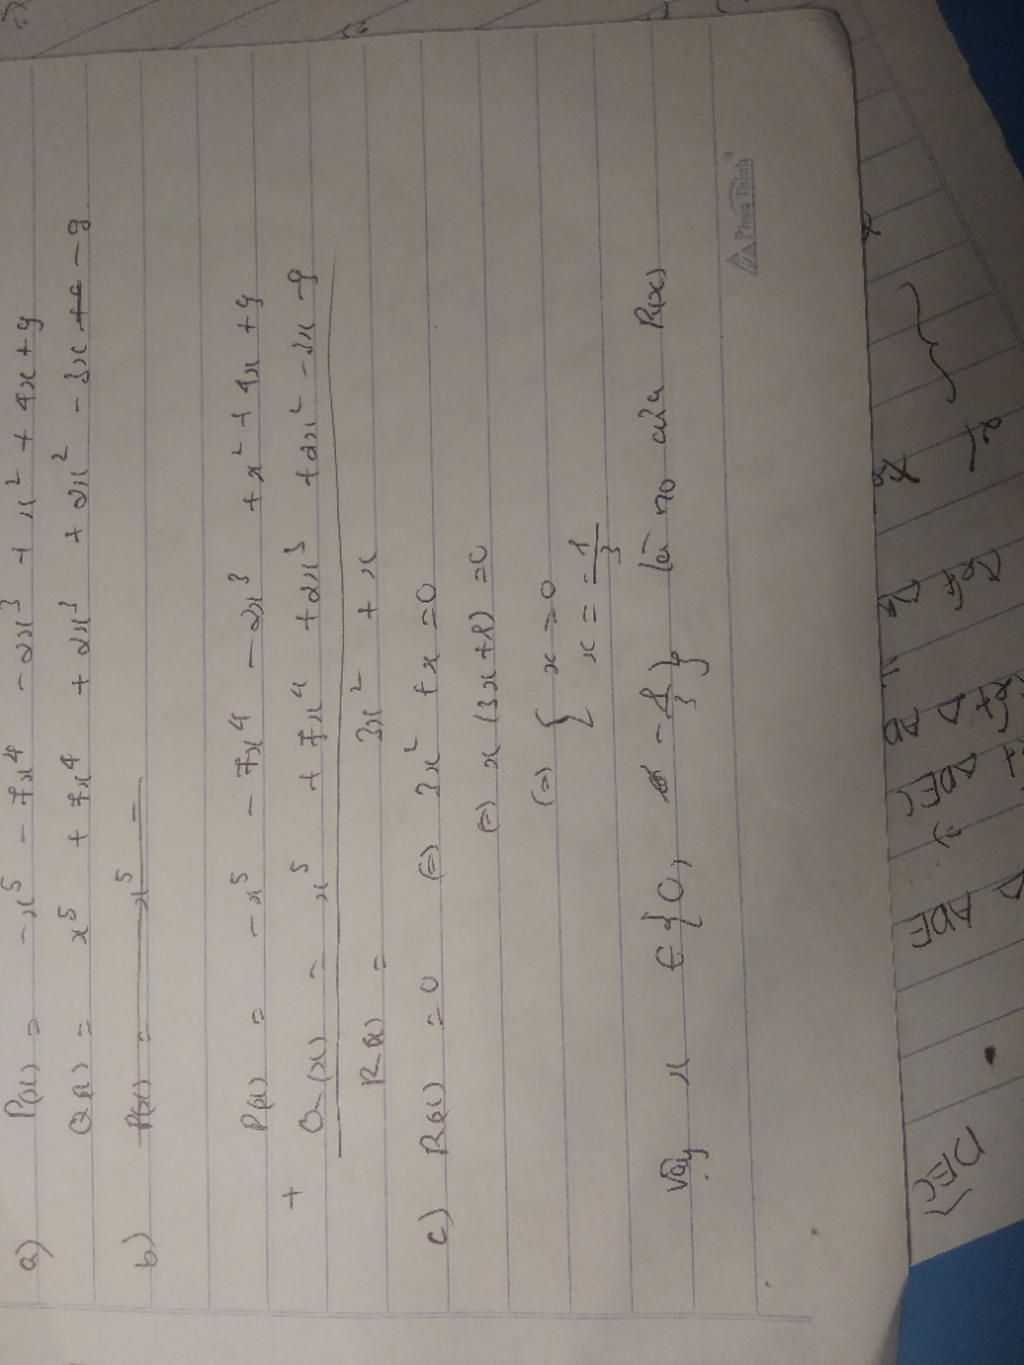 a) P(x) = -x⁵ - 7x⁴ - 2x³ + x² + 4x + 9
Q(x) = x⁵ + 7x⁴ + 2x³ + 2x² - 3x - 9
b) P(x) = x⁵ =
P(x) = -x⁵ - 7x⁴ - 2x³ + x² + 4x + 9
+
Q(x) = x⁵ + 7x⁴ + 2x³ + 2x² - 3x - 9
R(x) = 3x² + x
c) R(x) = 0 (=) 3x² + x = 0
(=) x (3x + 1) = 0
(=) { x = 0
x = -1/3
Vậy x ∈ {0, -1/3} là no của R(x)
Phua Thinh®
DEC)
Δ ADE
ADEC